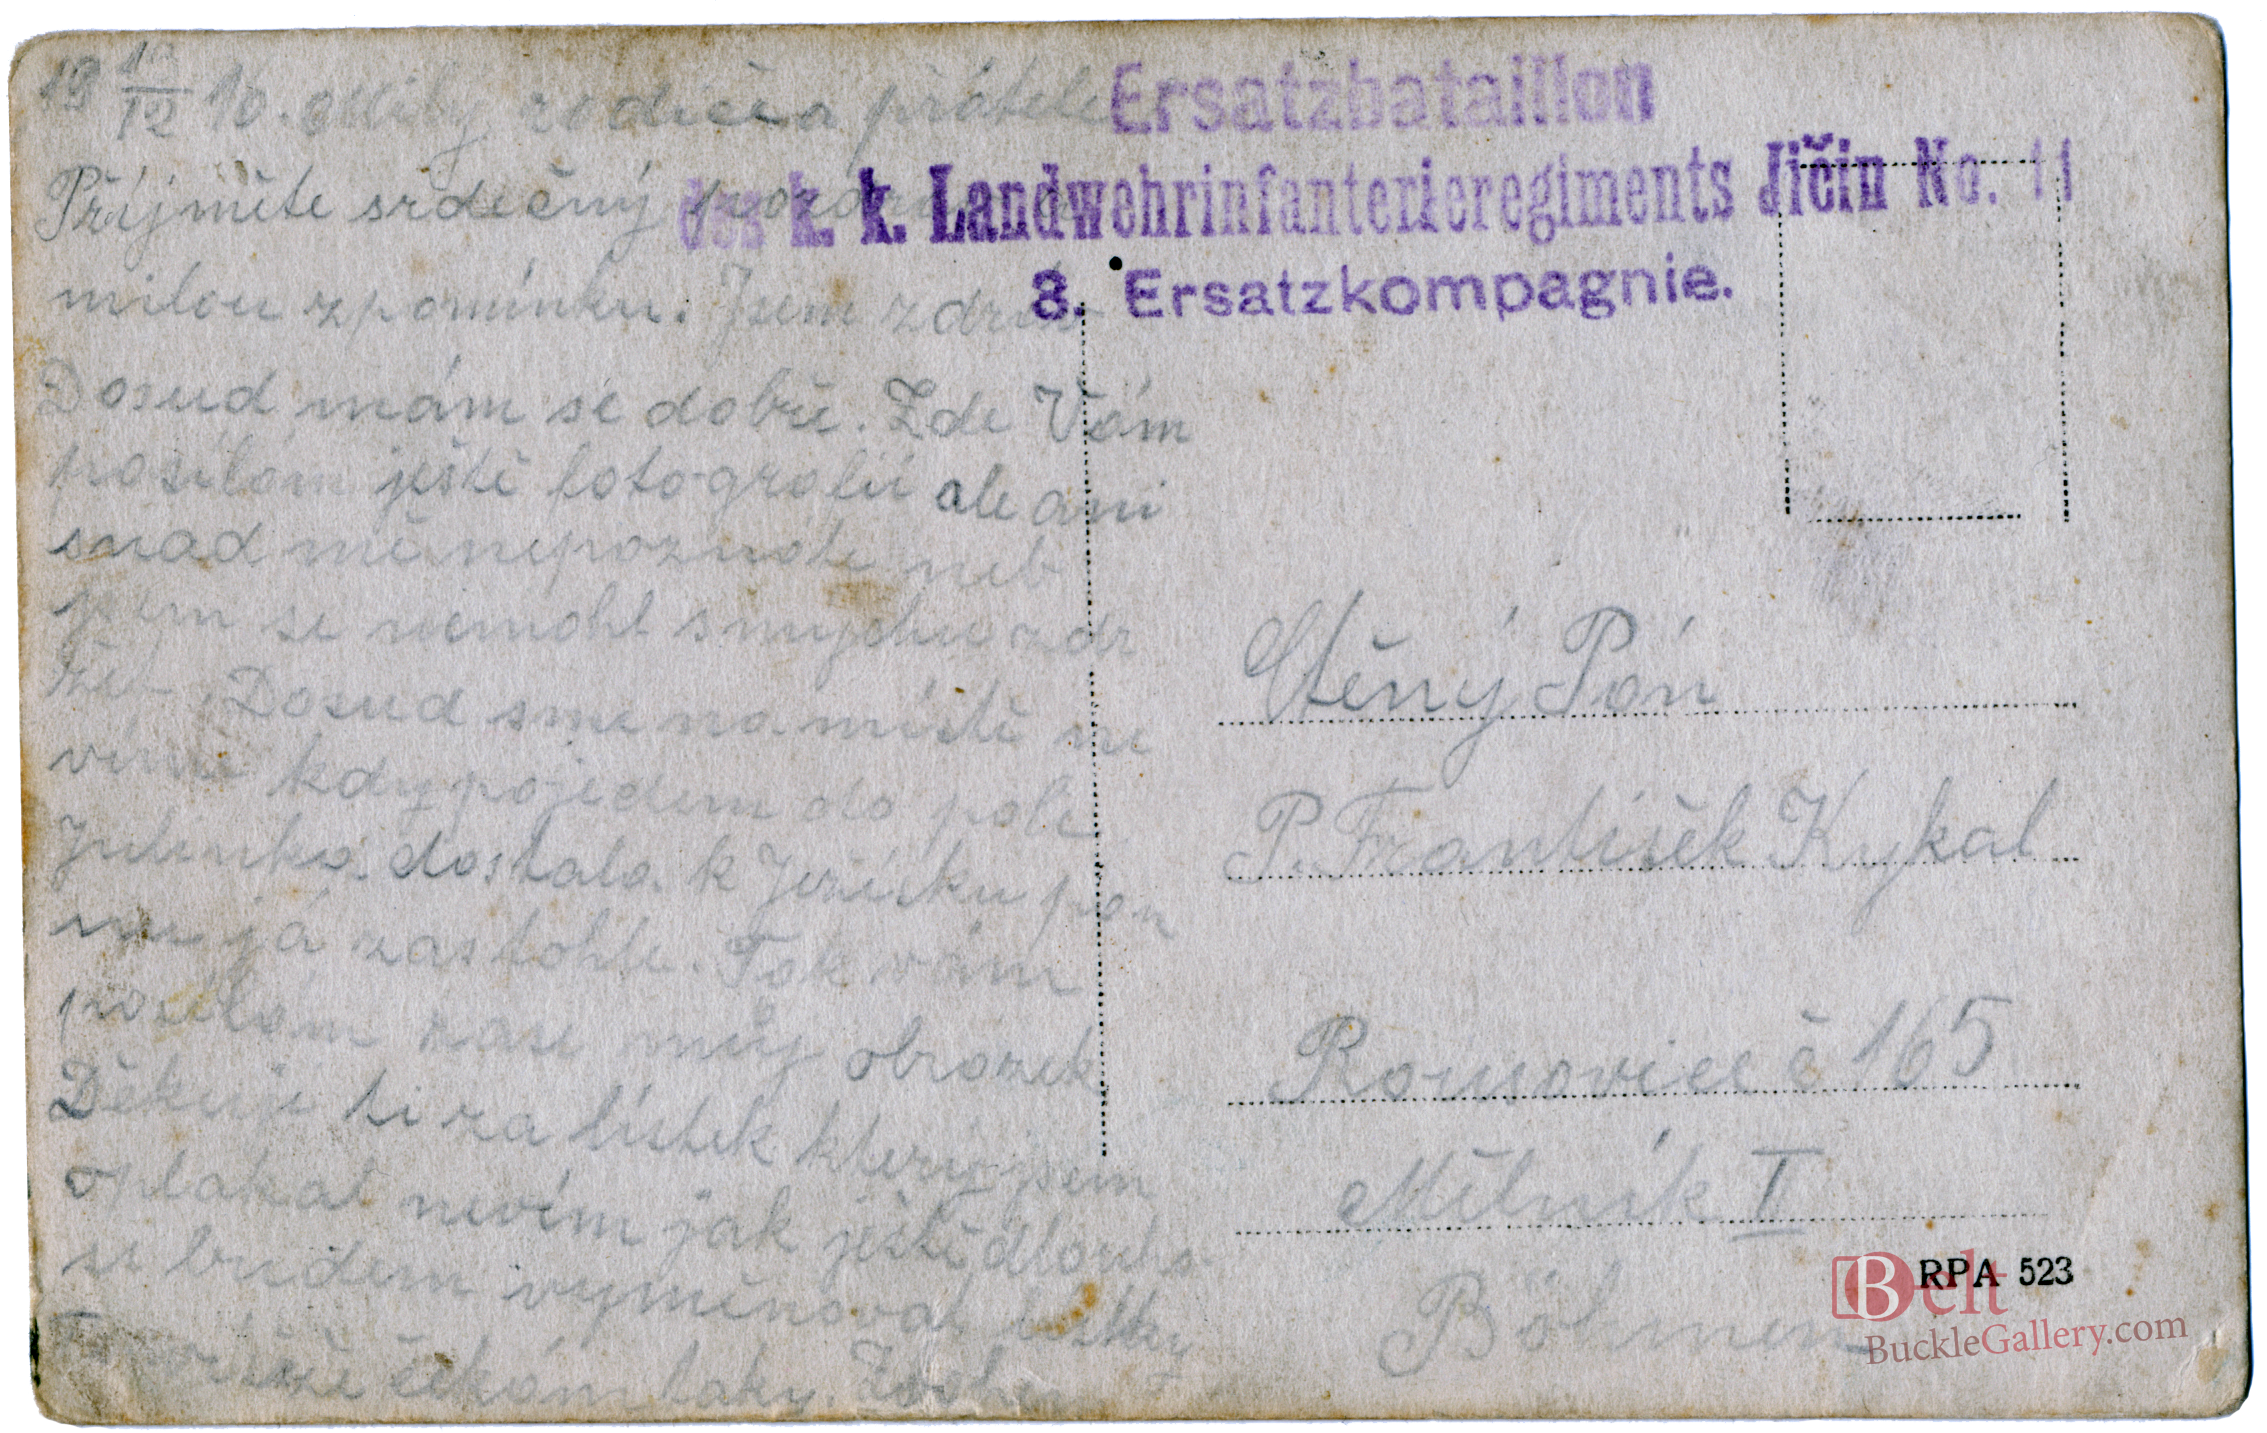 19 10/12 16. Milý rodiče a přátelé
Přijměte srdečný pozdrav
milou zpomínku. Jsem zdráv
Dosud mám se dobře. Zde Vám
posílám ještě fotografii ale ani
snad mě nepoznáte neb
jsem se nemohl smychu zdr
žet. Dosud sme na místě ne
víme kdy pojedem do pole
Julinka dostala k Ježíšku pán
já zastohle. Tak vám
posílám zase můj obrazek
Děkuji ti za lístek který jsem
oplakal nevím jak ještě dlouho
si budem vyměňovat lístky
čekám taky.
Ersatzbataillon
des k. k. Landwehrinfanterieregiments Jičin No. 11
8. Ersatzkompagnie.
Ctěný Pán
P. František Kykal
Rousovice č 165
Mělník I
Böhmen
RPA 523
Belt
BuckleGallery.com